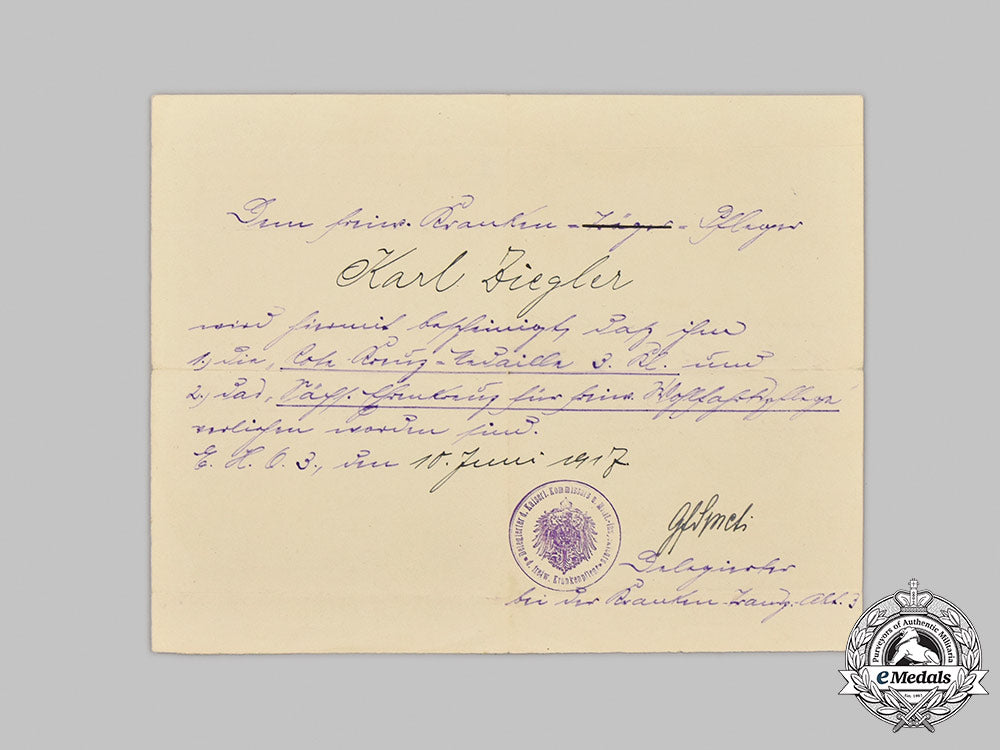 Dem freiw. Kranken-Träger-Pfleger
Karl Ziegler
wird hiermit bescheinigt, daß ihm
1.) die „Rote Kreuz-Medaille 3. Kl. und
2.) das „Sächs. Ehrenkreuz für freiw. Wohlfahrtspflege
verliehen worden sind.
E. H. O. 3., den 10. Juni 1917
Delegierter d. Kaiserl. Kommissars u. Milit.-Insp.
d. freiw. Krankenpflege
Delegierter
bei der Kranken-Transp. Abt. 3
Purveyors of Authentic Militaria
eMedals